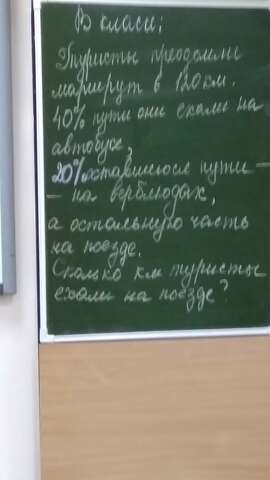 В класи;
Туристы преодолели
маршрут в 120 км.
40% пути они ехали на
автобусе,
20% оставшегося пути -
- на верблюдах,
а остальную часть
на поезде.
Сколько км туристы
ехали на поезде?